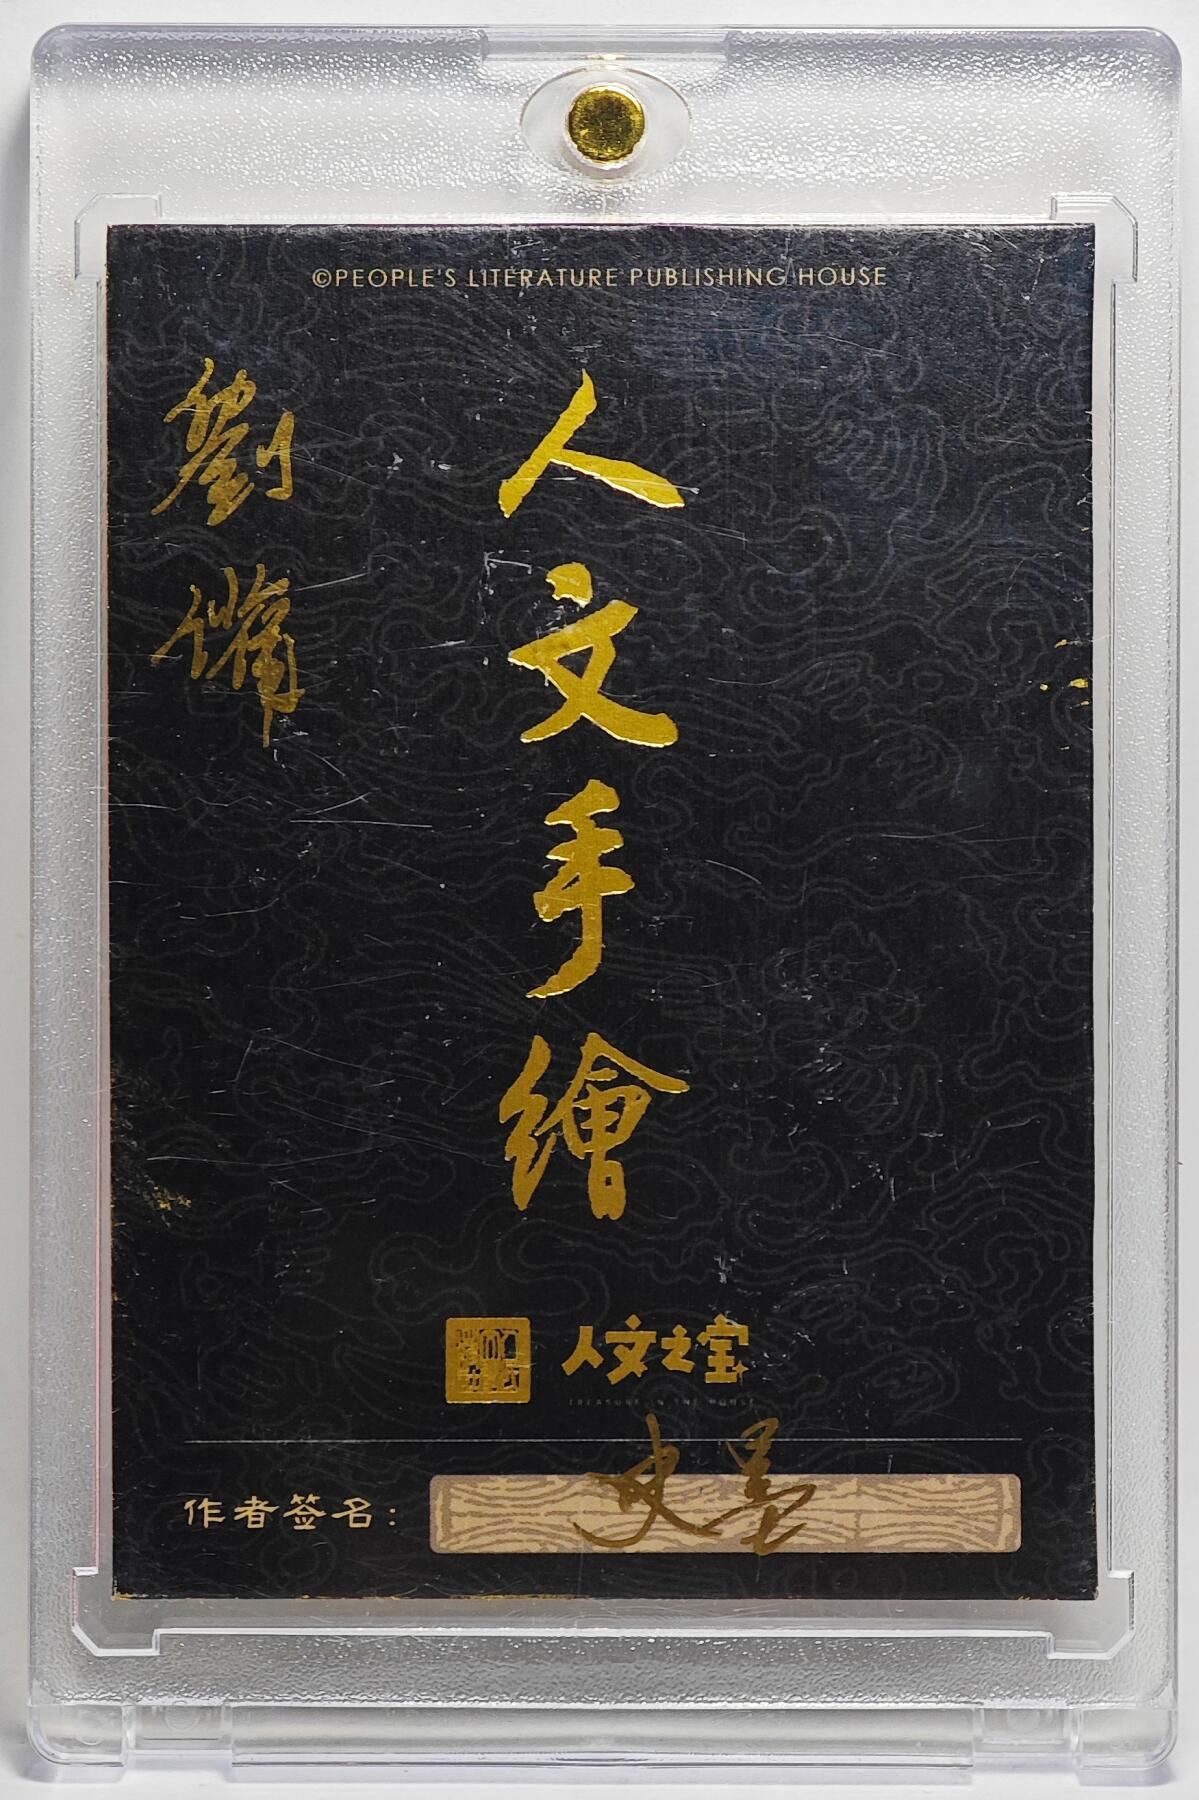 ©PEOPLE'S LITERATURE PUBLISHING HOUSE
人文手繪
劉備
人文之宝
TREASURE IN THE HOUSE
作者签名：
史墨